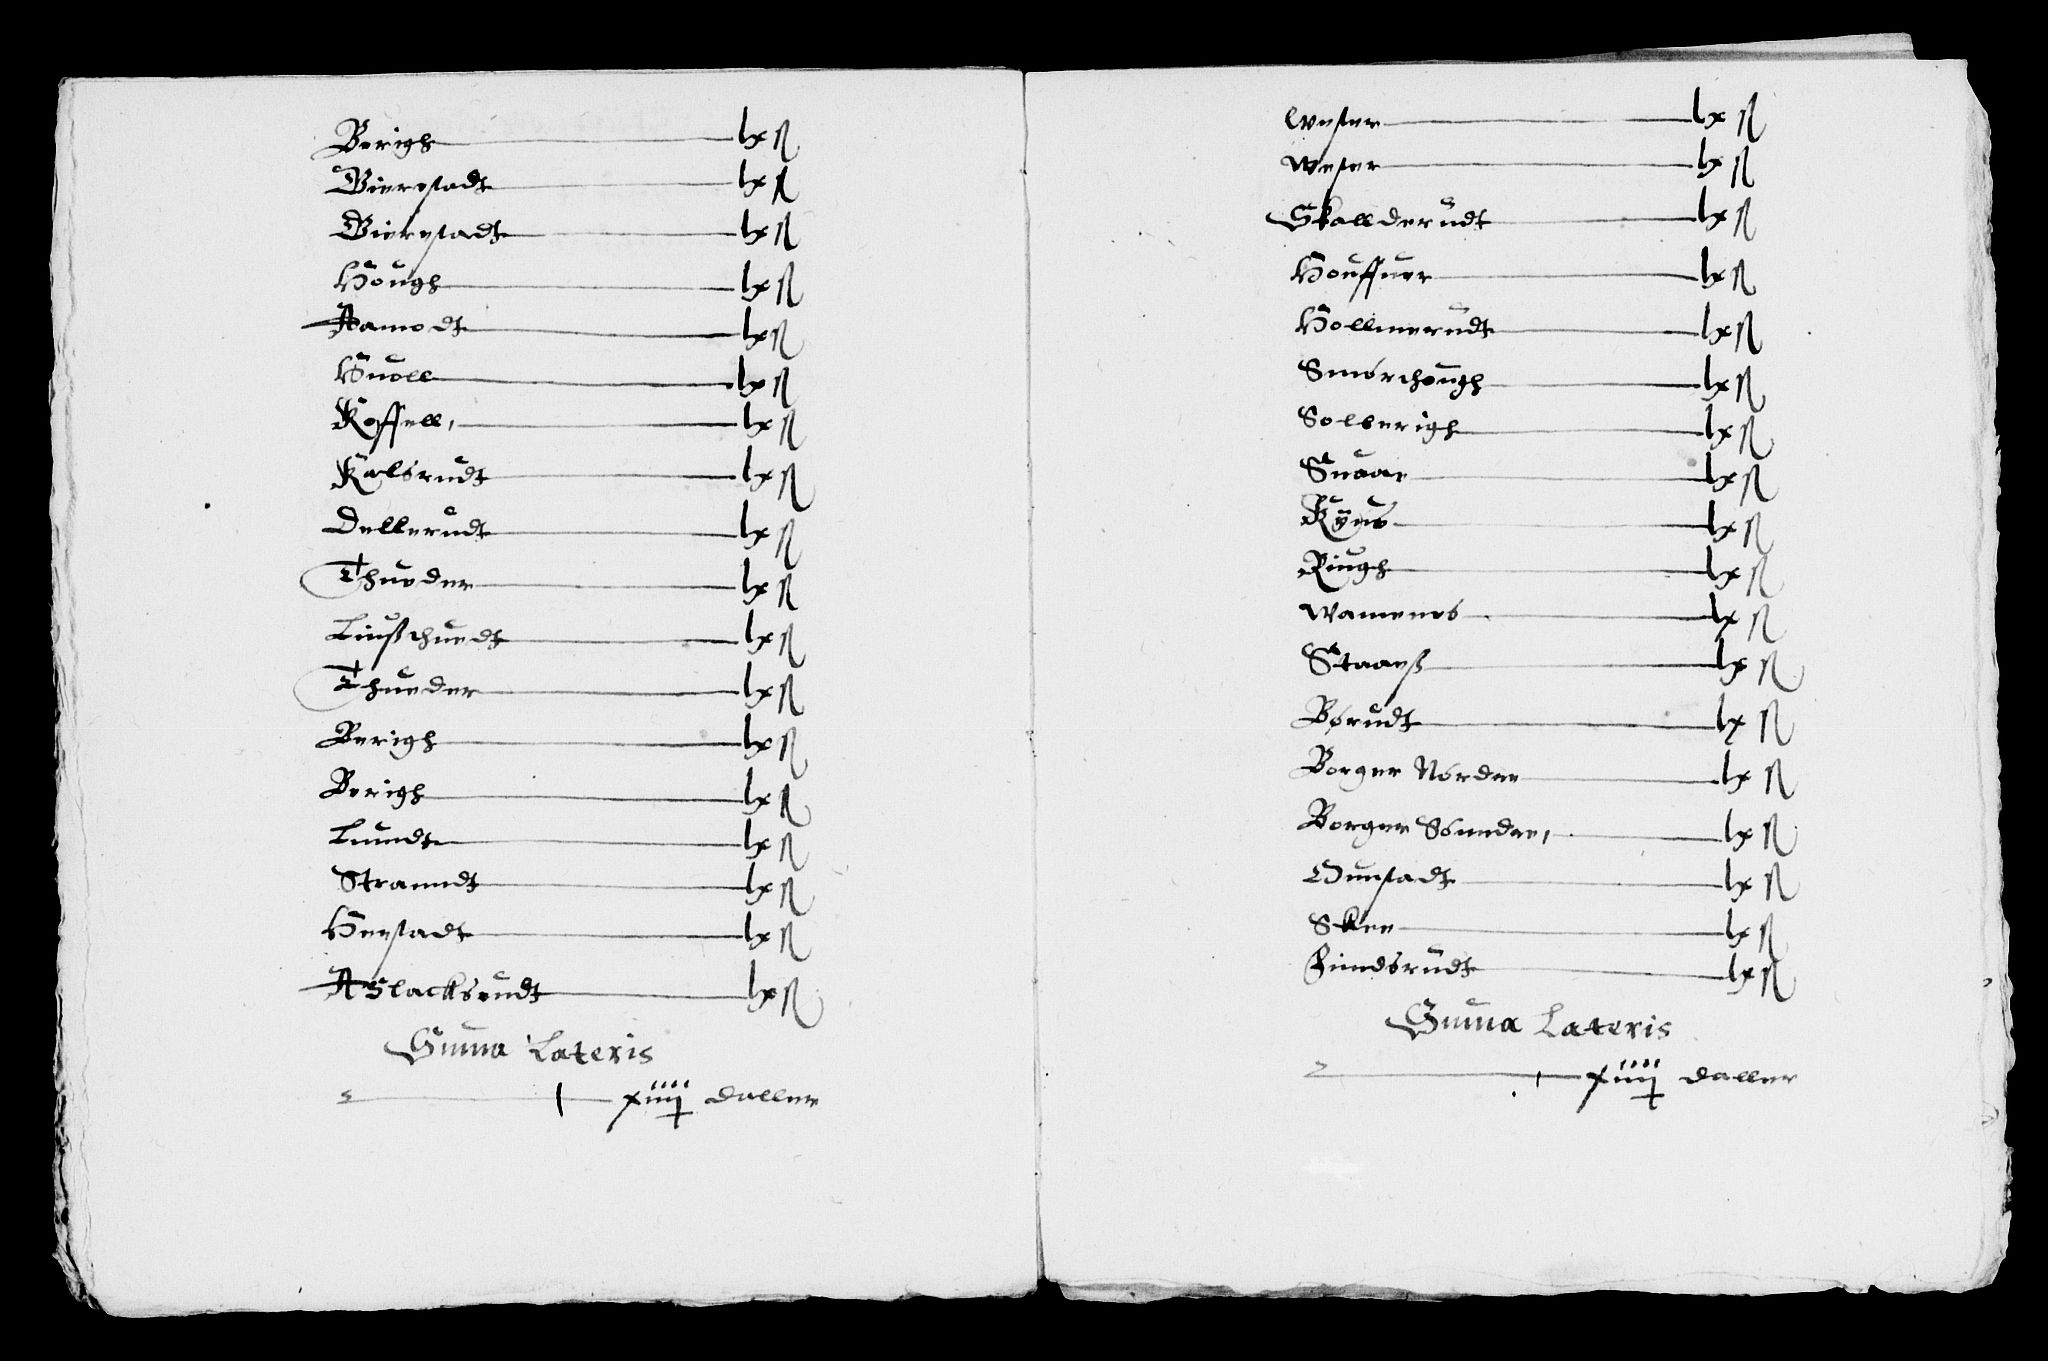 Berigh lx ß
Bierestadt lx ß
Bierestadt lx ß
Hough lx ß
Aamodt lx ß
Huoll lx ß
Koffell, lx ß
Kalsrudt lx ß
Dellerudt lx ß
Thueder lx ß
Liußchuedt lx ß
Thueder lx ß
Berigh lx ß
Berigh lx ß
Lundt lx ß
Stranndt lx ß
Heestadt lx ß
Aslacksrudt lx ß
Suma Lateris
xiiij daller
Wester lx ß
Wester lx ß
Skallderudt lx ß
Houffuer lx ß
Hollmerudt lx ß
Smörchough lx ß
Solberigh lx ß
Snaar lx ß
Ryes lx ß
Riugh lx ß
Wamenes lx ß
Staaeß lx ß
Börudt lx ß
Borger Nördre lx ß
Borger Söndre, lx ß
Ounstadt lx ß
Skee lx ß
Findsrudt lx ß
Suma Lateris
xiiij daller